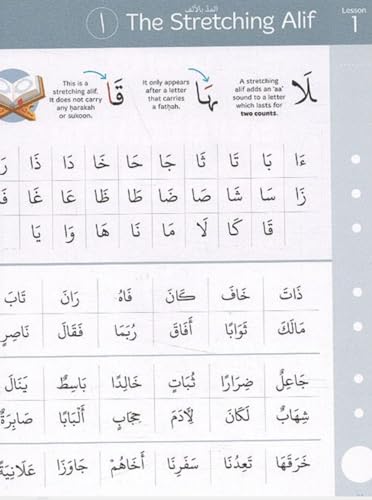 المدّ بالألف
The Stretching Alif
١
Lesson
1
This is a
stretching alif.
It does not carry
any ḥarakah
or sukoon.
قَا
It only appears
after a letter
that carries
a fatḥah.
هَا
A stretching
alif adds an 'aa'
sound to a letter
which lasts for
two counts.
لَا
ءَا بَا تَا ثَا جَا حَا خَا دَا ذَا
زَا سَا شَا صَا ضَا طَا ظَا عَا غَا
قَا كَا لَا مَا نَا هَا وَا يَا
ذَاتَ خَافَ كَانَ فَاهُ رَانَ تَابَ
مَالَكَ ثَوَابًا أَفَاقَ رُبَمَا فَقَالَ نَاصِرٍ
جَاعِلٌ ضِرَارًا ثُبَاتٍ خَالِدًا بَاسِطٌ يَنَالَ
شِهَابٌ لَكَانَ لِأَدَمَ حِجَابٍ أَلْبَابًا صَابِرَةٌ
خَرَقَهَا تَعِدُنَا سَفَرِنَا أَخَاهُمْ جَاوَزَا عَلَانِيَةً